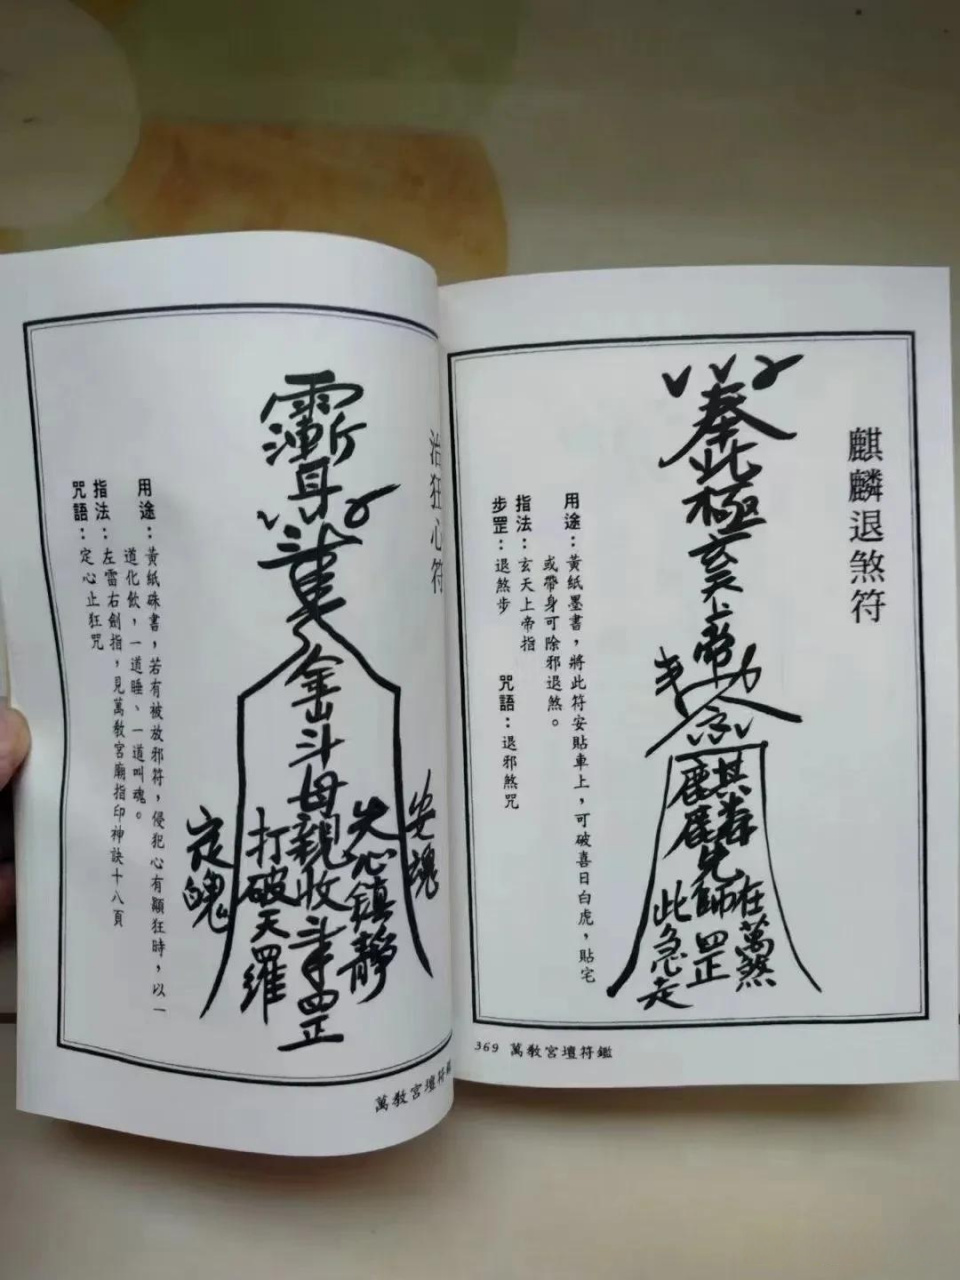 麒麟退煞符
奉北極玄天上帝勅令
麒麟先師在萬煞
罡
此急走
用途：黃紙墨書，將此符安貼車上，可破喜日白虎，貼宅
或帶身可除邪退煞。
指法：玄天上帝指
步罡：退煞步　咒語：退邪煞咒
369 萬教宮壇符鑑
治狂心符
金山斗母親收斗罡
失心鎮靜
打破天羅
安魂
定魄
用途：黃紙硃書，若有被放邪符，侵犯心有顚狂時，以一
道化飲，一道睡、一道叫魂。
指法：左雷右劍指，見萬教宮廟指印神訣十八頁
咒語：定心止狂咒
萬教宮壇符